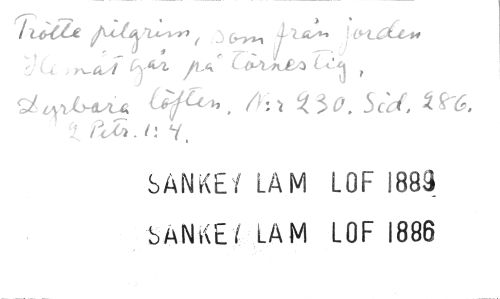 Trötte pilgrim, som från jorden
Hemåt går på törnestig,
Dyrbara löften. N:r 230. Sid. 286.
2 Petr. 1:4.
SANKEY LAM LOF 1889
SANKEY LAM LOF 1886